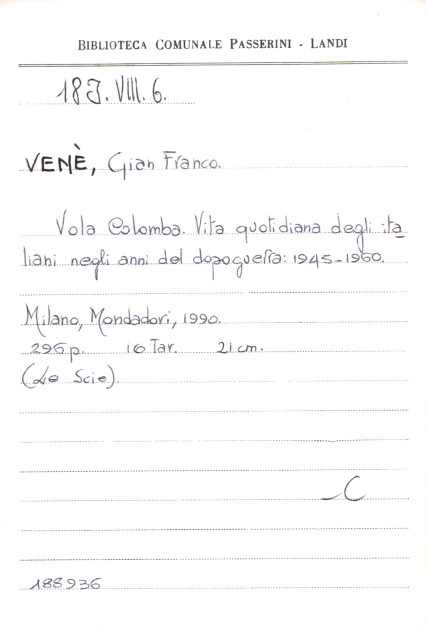 BIBLIOTECA COMUNALE PASSERINI - LANDI
18J.VIII.6.
VENÈ, Gian Franco.
Vola Colomba. Vita quotidiana degli ita
liani negli anni del dopoguerra: 1945-1960.
Milano, Mondadori, 1990.
295p. 16 Tav. 21 cm.
(Le Scie).
C
188936